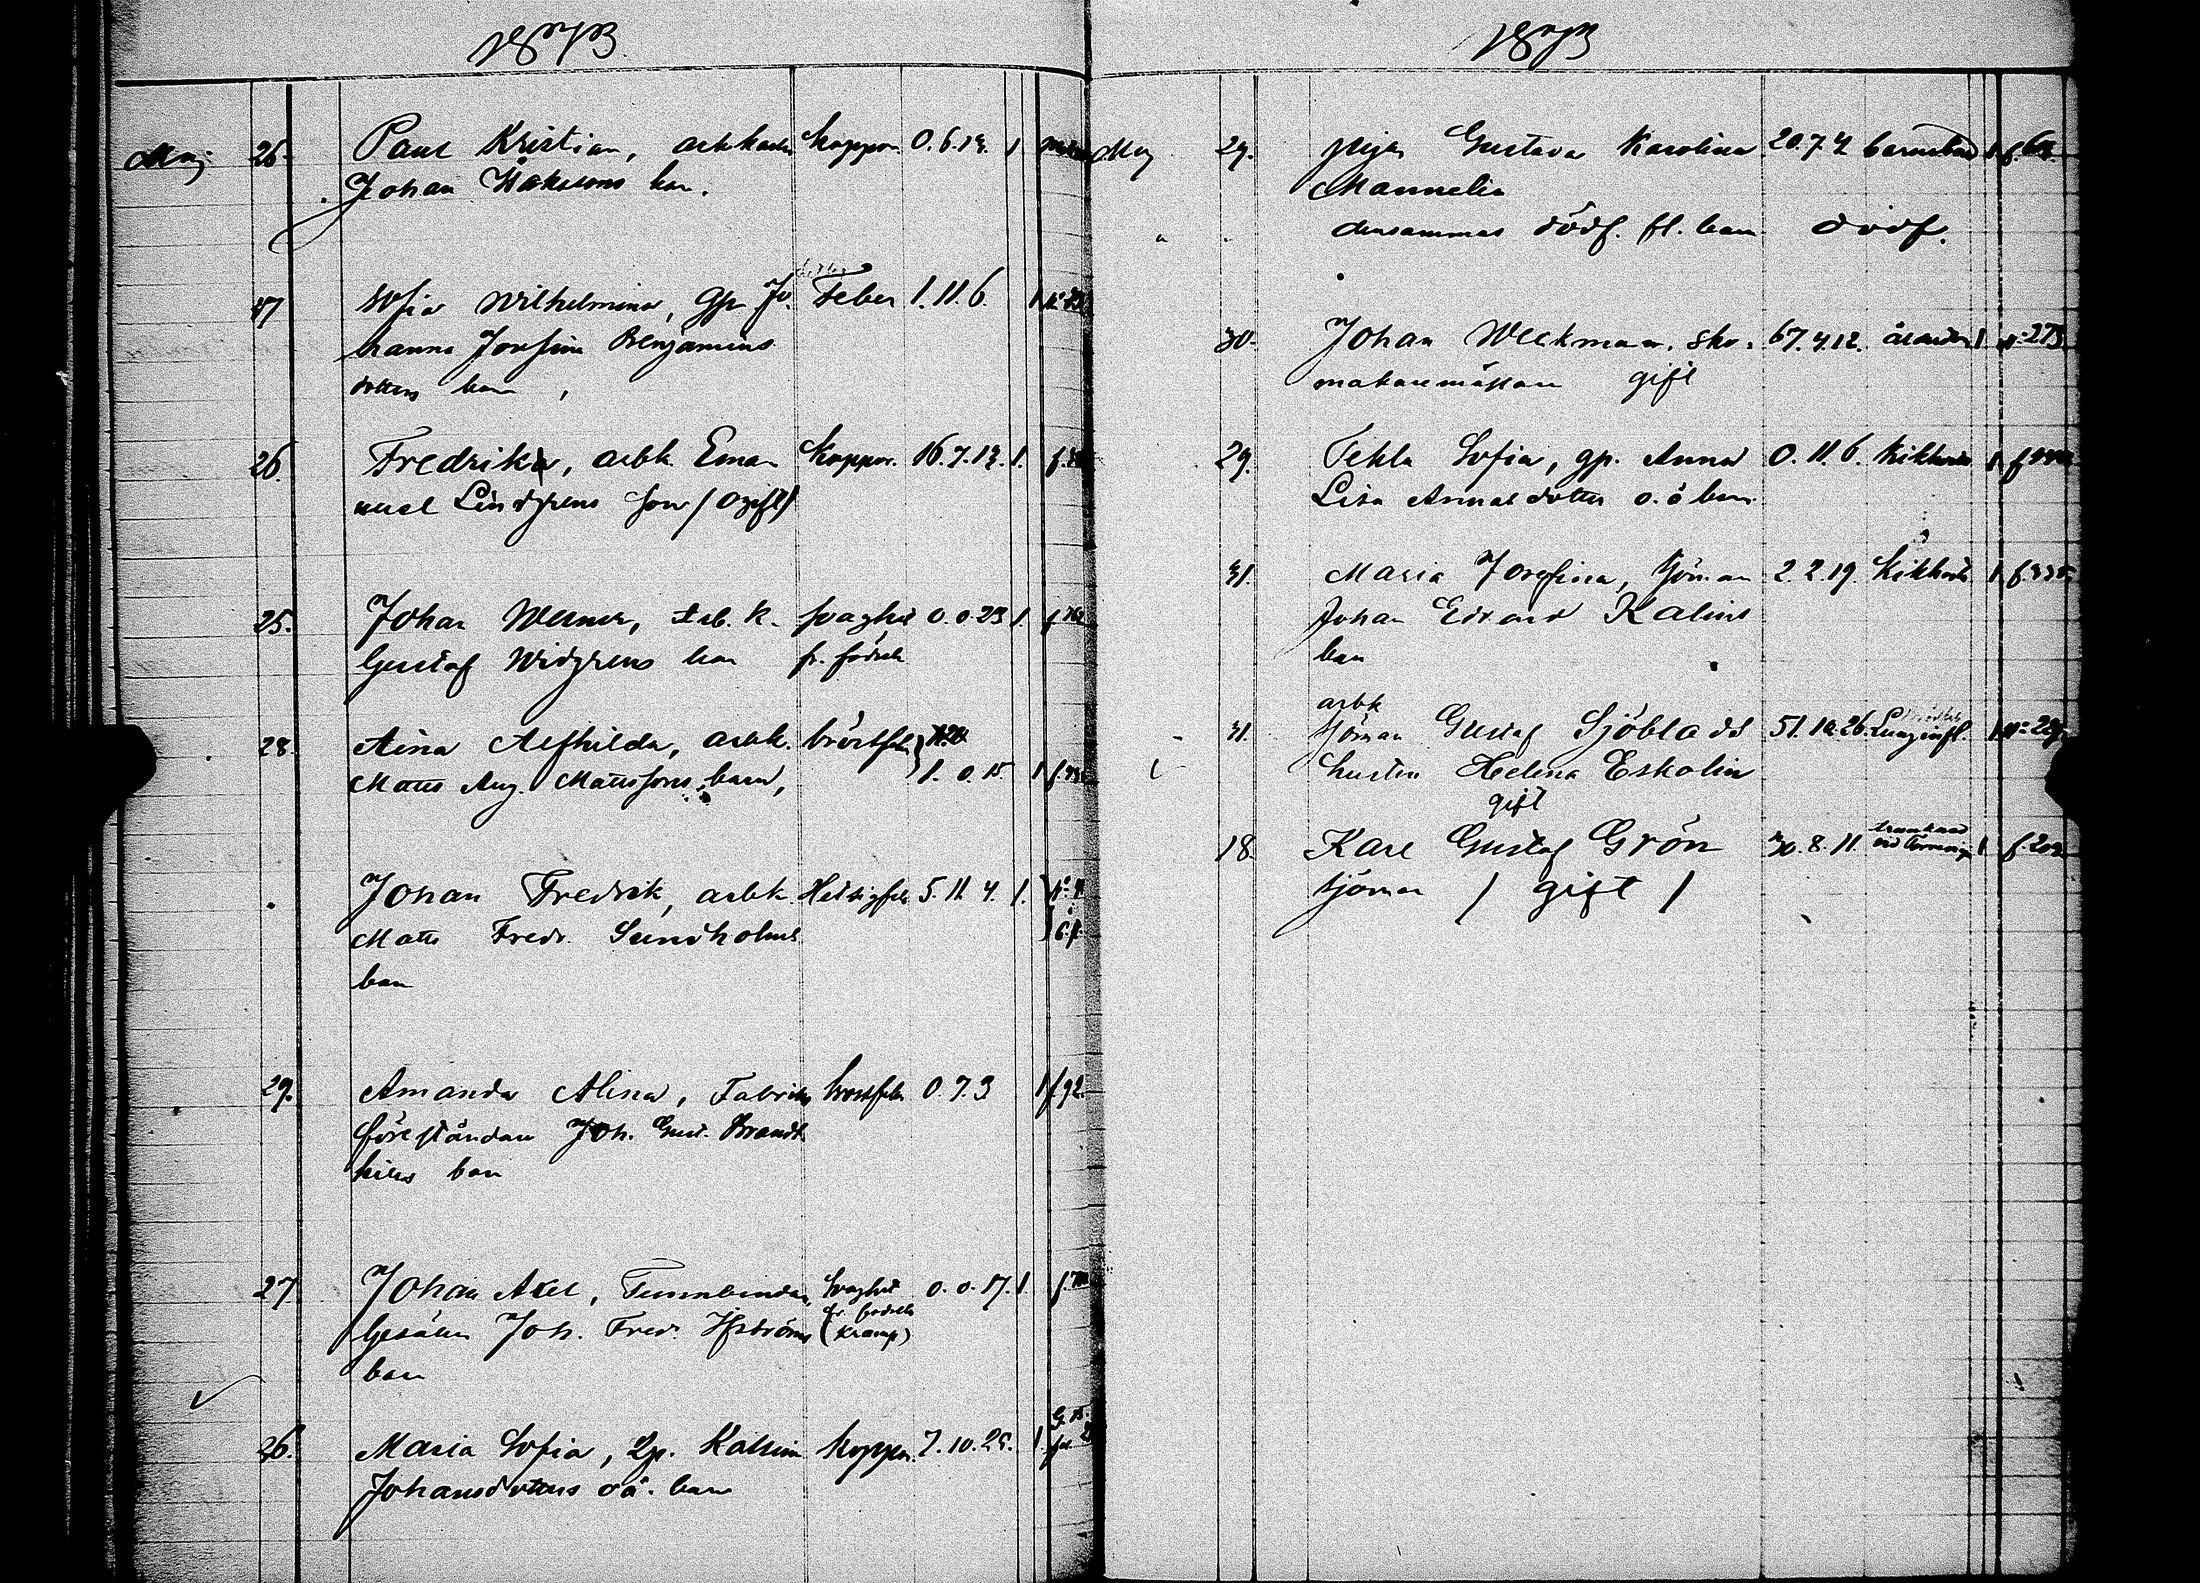 1873
Maj 26. Paul Kristian, arbkarln koppor 0.6.13. 1
Johan Håkssons barn.
27 Sofia Wilhelmina, gp. Jo- Feber 1.11.6. 1
hanna Josefina Benjamins
dotters barn,
26 Fredrik, arbk. Ema- koppor. 16.7.13. 1.
nuel Lindgrens son / ogift /
25. Johan Werner, arb.k. svaghet 0.0.23 1.
Gustaf Widgrens barn fr. födseln
28. Aina Alfhilda, arbk. bröstfeber
Matts Aug. Mattssons barn, 1.0.15 1
Johan Fredrik, arbk. Hetsigfeb. 5.11.4. 1.
Matts Fredr. Sundholms
barn
29. Amanda Alina, Fabriks bröstfeb. 0.7.3 1 f.92.
föreståndare Joh. Gust. Brandt-
barn
27 Johan Axel, Tunnbindare, Svaghet 0.0.17. 1.
Gesällen Joh. Fredr. fr. födseln
(kramp)
barn
26. Maria Sofia, gp. Katrina koppor. 7.10.25. 1.
Johansdotters oä. barn
1873
Maj 29. pigan Gustava Karolina 20.7.4 barnsbörd 1
Mannelin
densammas dödf. fl. barn dödf.
30. Johan Weckman, sko- 67.4.12. ålderdom 1
makaremästare gift
29. Tekla Sofia, gp. Anna 0.11.6. kikhosta 1
Lisa Annasdotter o.ä barn.
31. Maria Josefina, Sjöman 2.2.19. kikhosta 1
Johan Edvard Kalins
barn
arbk
31. Sjöman Gustaf Sjöblads 51.10.26. Lunginfl. 1
hustru Helena Eskolin
gift
18. Karl Gustaf Grön 30.8.11. drunknad 1
Sjöman / gift /